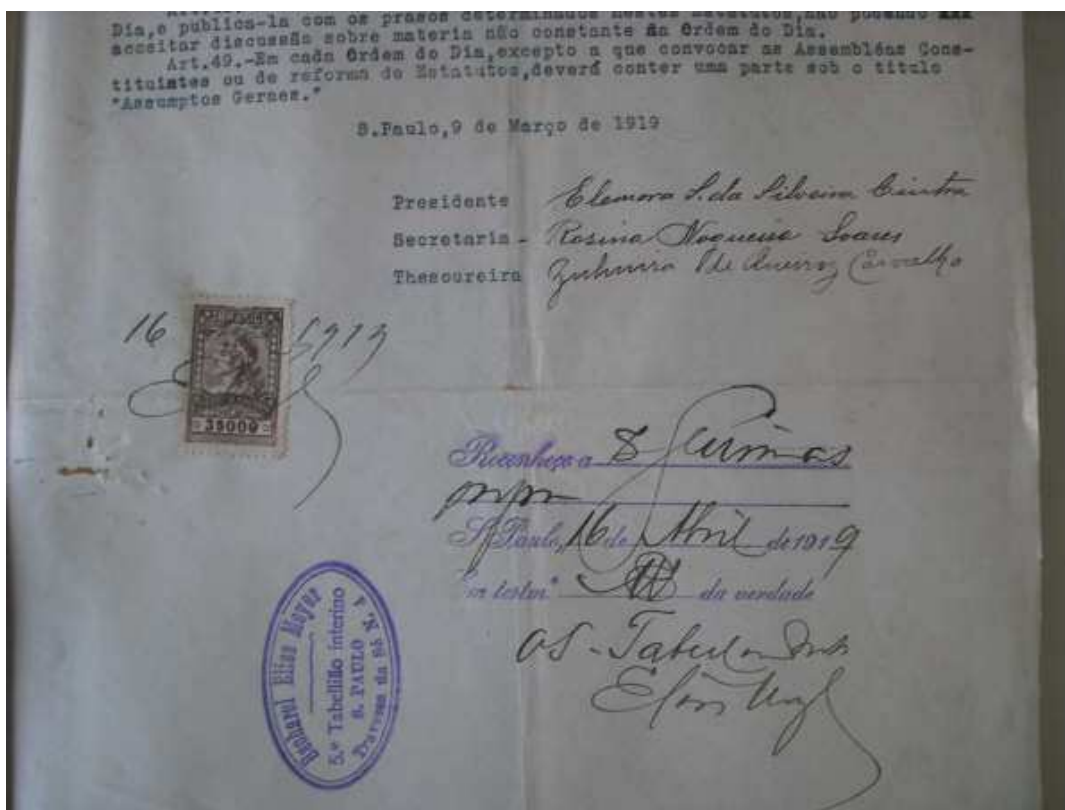 Dia,e publica-la com os prasos determinados nestes Estatutos,não podendo xxx
acceitar discussão sobre materia não constante da Ordem do Dia.
Art.49.-Em cada Ordem do Dia,excepto a que convocar as Assembléas Cons-
tituintes ou de reforma de Estatutos,deverá conter uma parte sob o titulo
"Assumptos Geraes."
S.Paulo,9 de Março de 1919
Presidente Eleonora S. da Silveira Cintra
Secretaria - Rosina Nogueira Soares
Thesoureira Zulmira de Queiroz Carvalho
16 1919
3$000
Reconheço a firmas
S. Paulo, 16 de Abril de 1919
da verdade
Bacharel Elias Moyse
5.º Tabellião interino
S. PAULO
Travessa da Sé N.